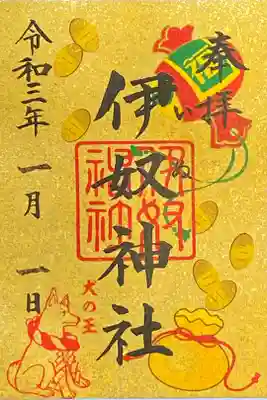 奉拝
いぬ
伊奴神社
伊奴
神社
犬の王
令和三年 一月 一日